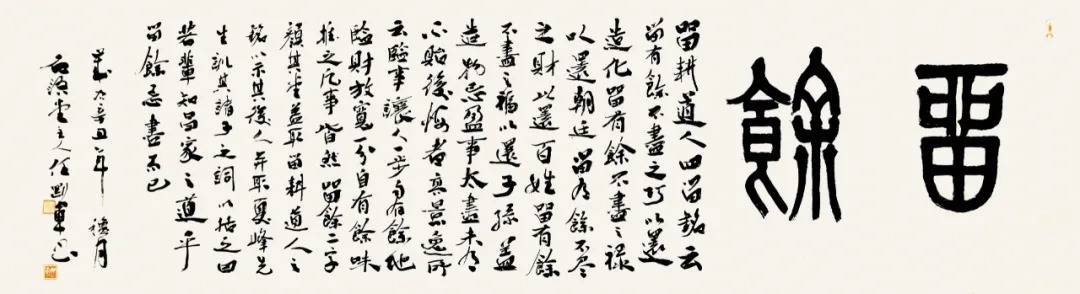 留餘
留耕道人四留銘云
留有餘不盡之巧以還
造化留有餘不盡之祿
以還朝廷留有餘不尽
之財以還百姓留有餘
不盡之福以還子孫蓋
造物忌盈事太盡未有
不貽後悔者高景逸所
云臨事讓人一步自有餘地
臨財放寬一分自有餘味
推之凡事皆然留餘二字
顏其堂蓋取留耕道人之
銘以示其後人并取夏峰先
生訓其諸子之詞以括之曰
若輩知昌家之道乎
留餘忌盡而已
歲在辛丑年 月
堂主人任